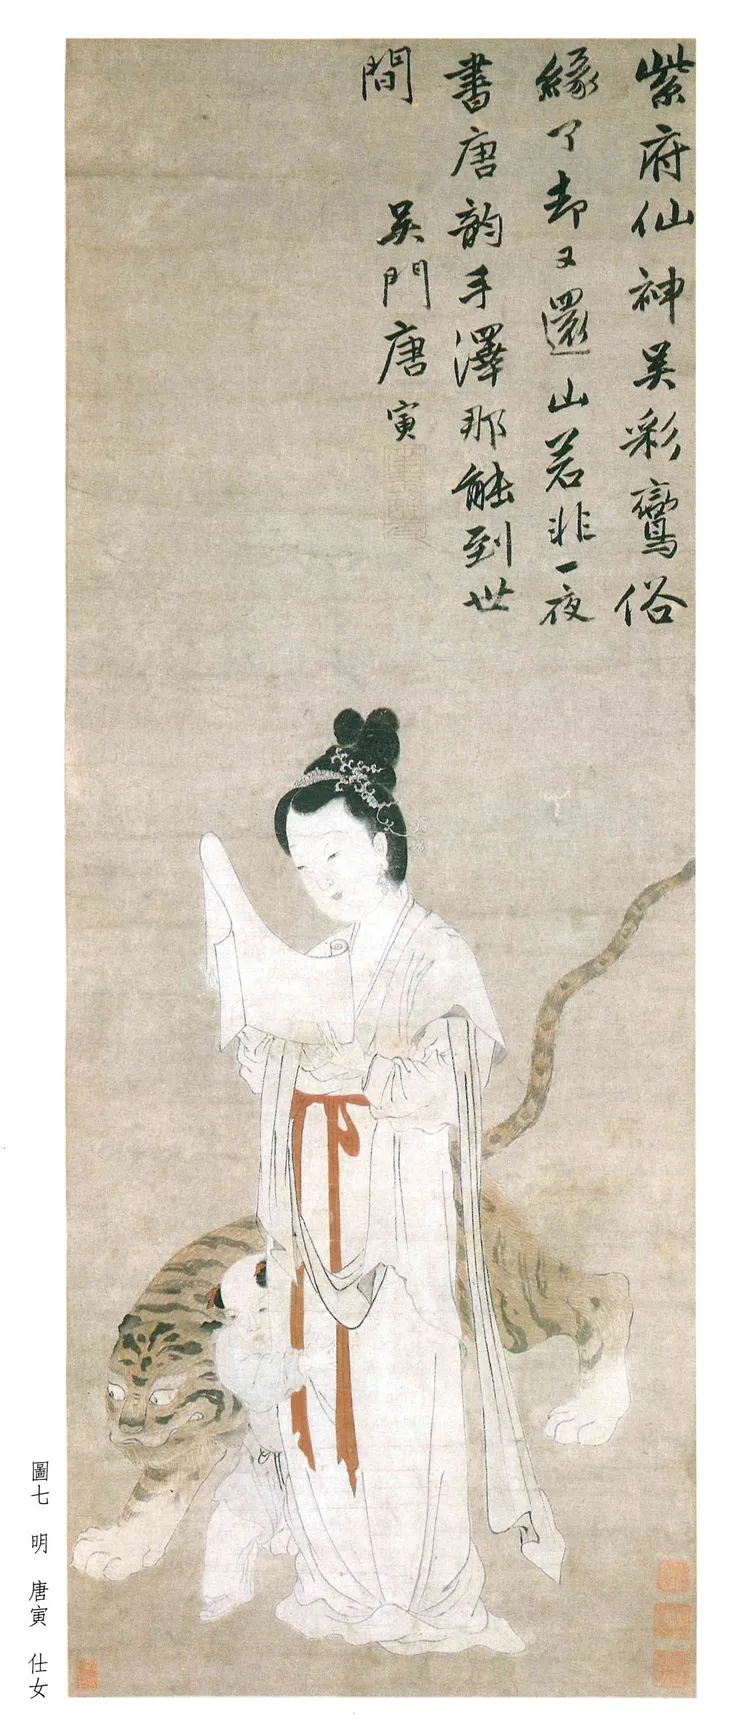 紫府仙神吳彩鸞俗
緣了却又還山若非一夜
書唐韵手澤那能到世
間
吳門唐寅
圖七 明 唐寅 仕女